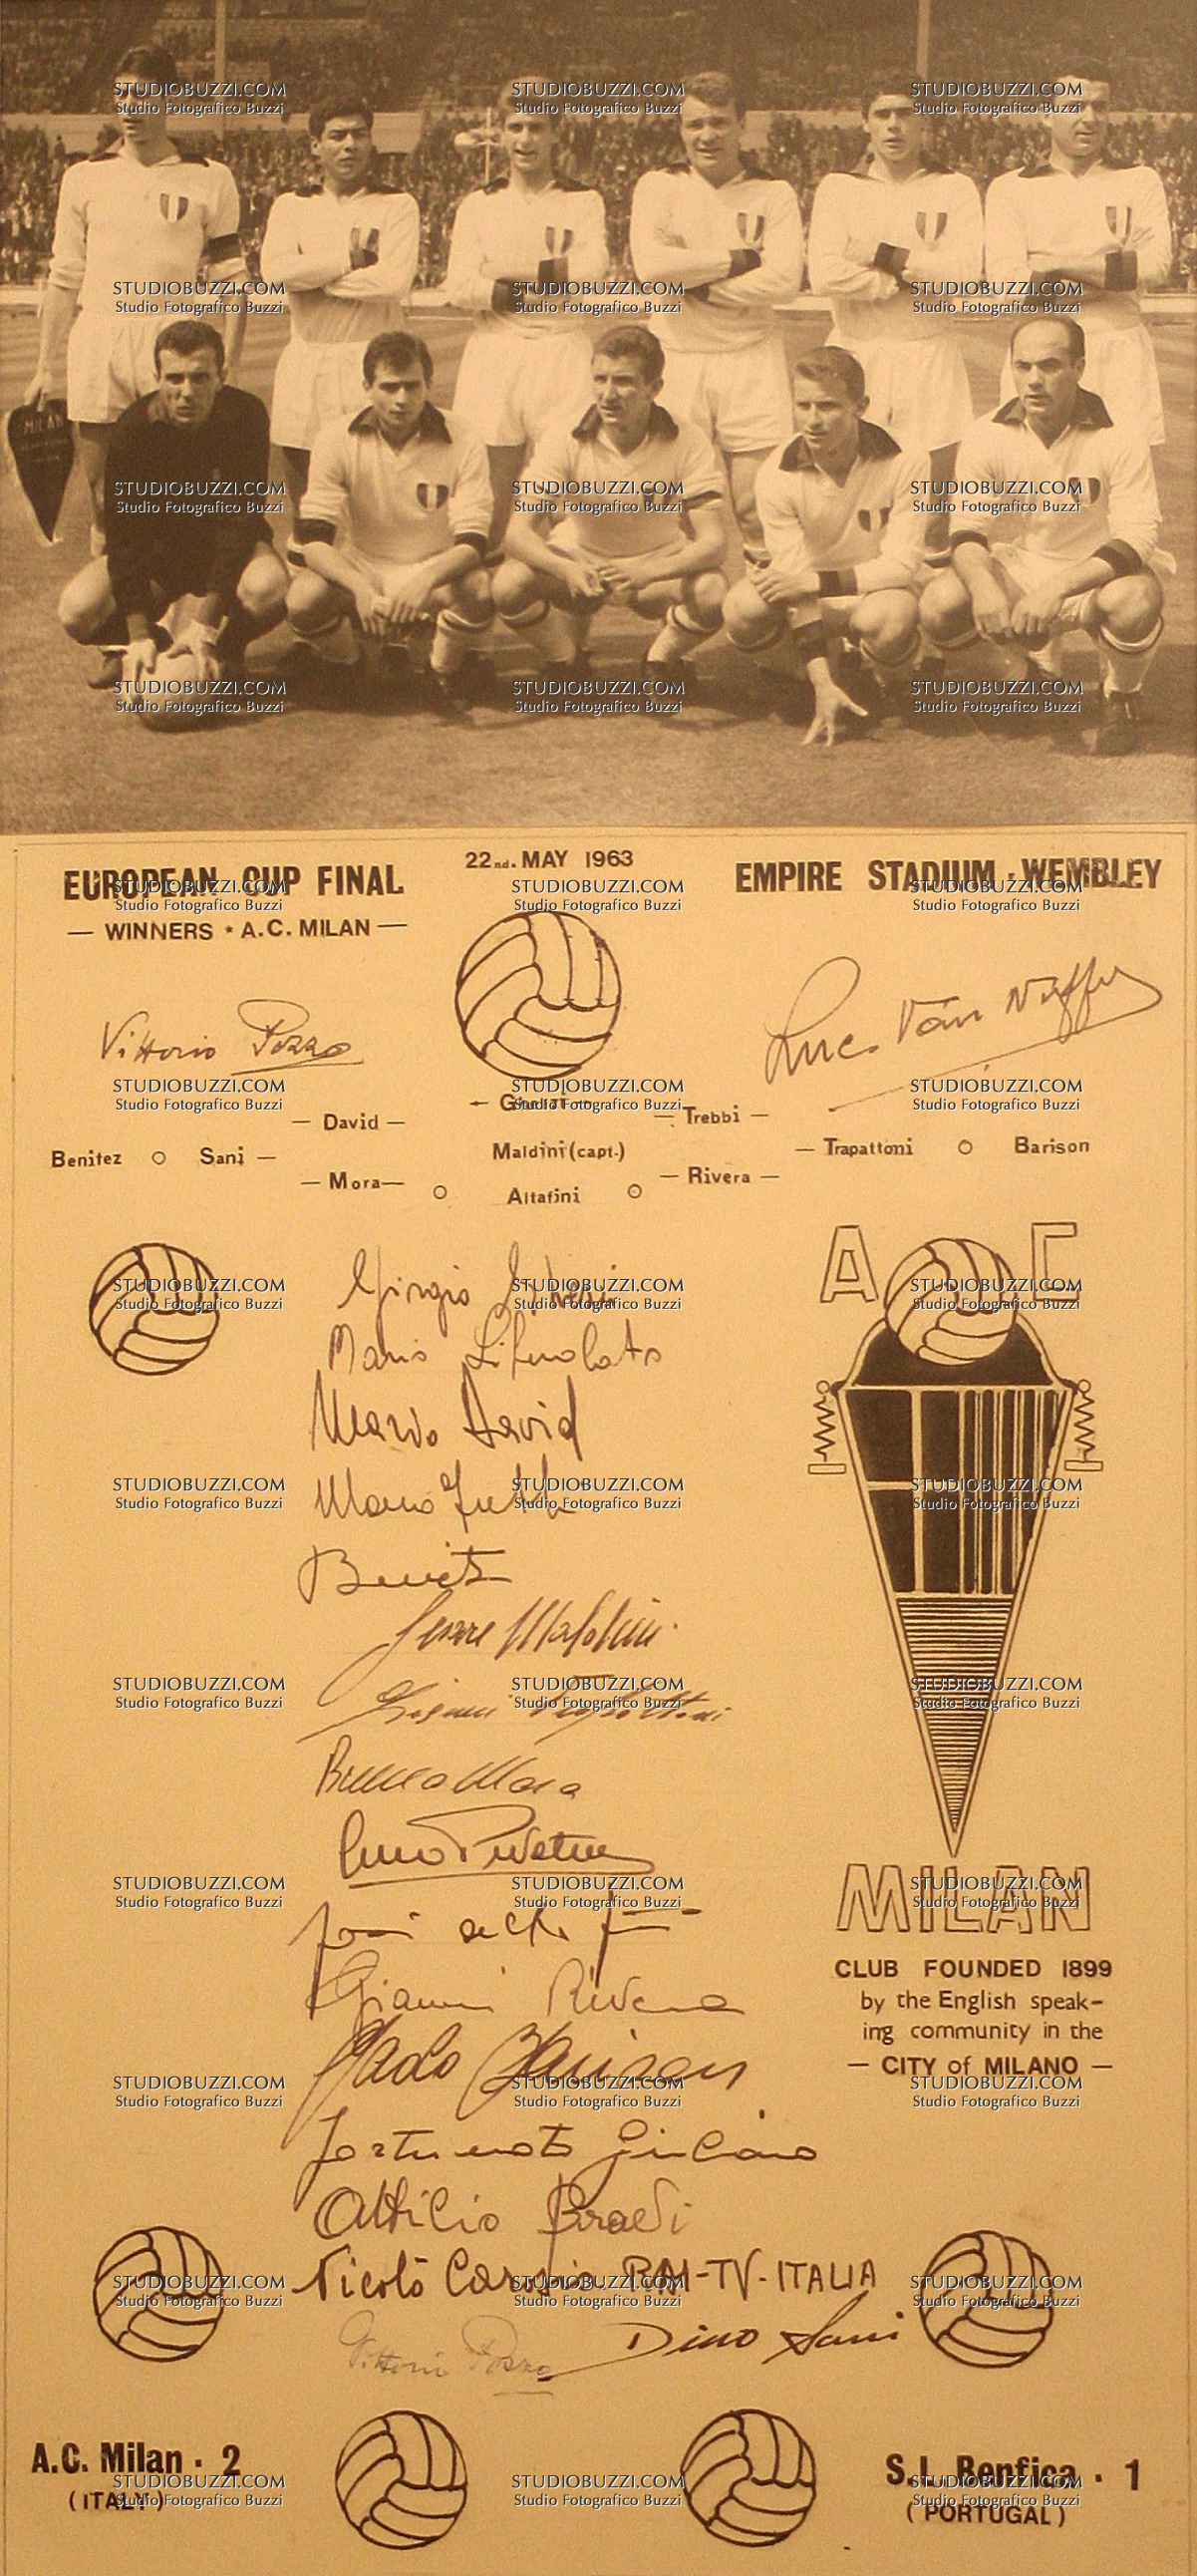 MILAN
EUROPEAN CUP FINAL
22nd. MAY 1963
EMPIRE STADIUM · WEMBLEY
— WINNERS * A.C. MILAN —
Vittorio Pozzo
Luc. Van
— David —
— Trebbi —
Benitez o Sani —
Maldini (capt.)
— Trapattoni o Barison
— Mora — o
Altafini o
— Rivera —
A C
Giorgio
Mario
Mario David
Mario Trebbi
Benitez
Cesare Maldini
Gianni Trapattoni
Bruno Mora
Gianni Rivera
Paolo Barison
Fortunato Giuliano
Attilio
Nicolò Carosio. RAI-TV-ITALIA
Vittorio Pozzo
Dino Sani
MILAN
CLUB FOUNDED 1899
by the English speak-
ing community in the
— CITY of MILANO —
A.C. Milan · 2
(ITALY)
S.L. Benfica · 1
(PORTUGAL)
STUDIOBUZZI.COM
Studio Fotografico Buzzi